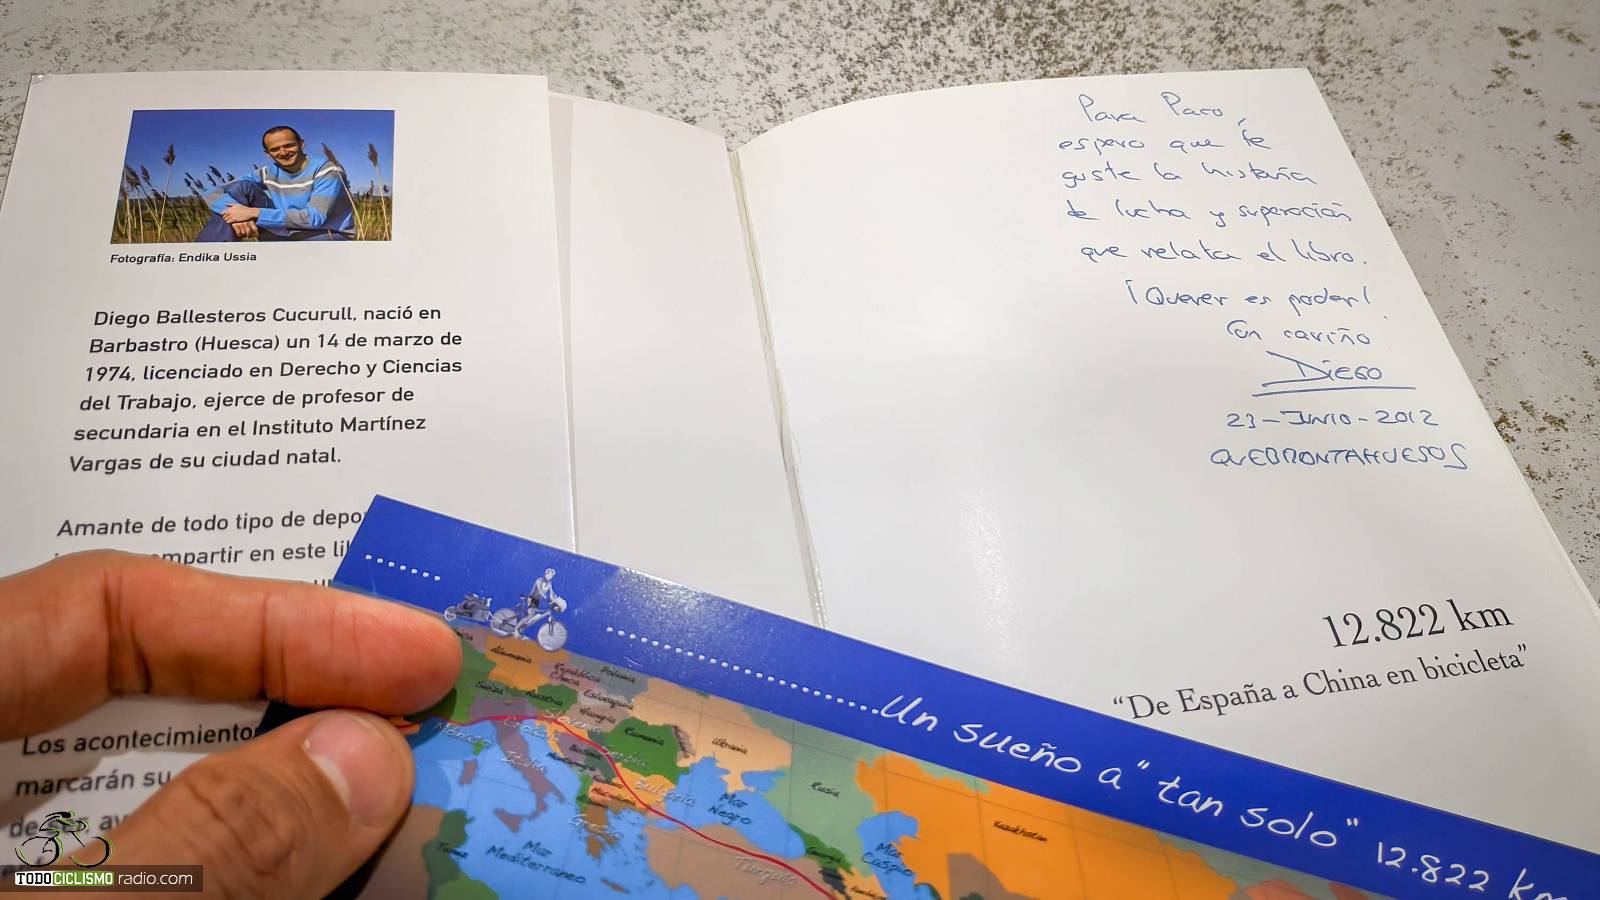 Fotografía: Endika Ussia
Diego Ballesteros Cucurull, nació en
Barbastro (Huesca) un 14 de marzo de
1974, licenciado en Derecho y Ciencias
del Trabajo, ejerce de profesor de
secundaria en el Instituto Martínez
Vargas de su ciudad natal.
Amante de todo tipo de depo
mpartir en este li
Los acontecimiento
marcarán su
Para Paco,
espero que te
guste la historia
de lucha y superación
que relata el libro.
¡Querer es poder!
Con cariño
DIEGO
23-JUNIO-2012
QUEBRONTAHUESOS
12.822 km
“De España a China en bicicleta”
Un sueño a “tan solo” 12.822 km
Alemania
República Checa
Polonia
Suiza
Austria
Eslovaquia
Hungría
Eslovenia
Croacia
Mónaco
Italia
Rumania
Ucrania
Serbia
Bulgaria
Grecia
Mar Negro
Rusia
Kazakhstan
Mar Caspio
Georgia
Turquía
Túnez
Mar Mediterraneo
TODOCICLISMO radio.com